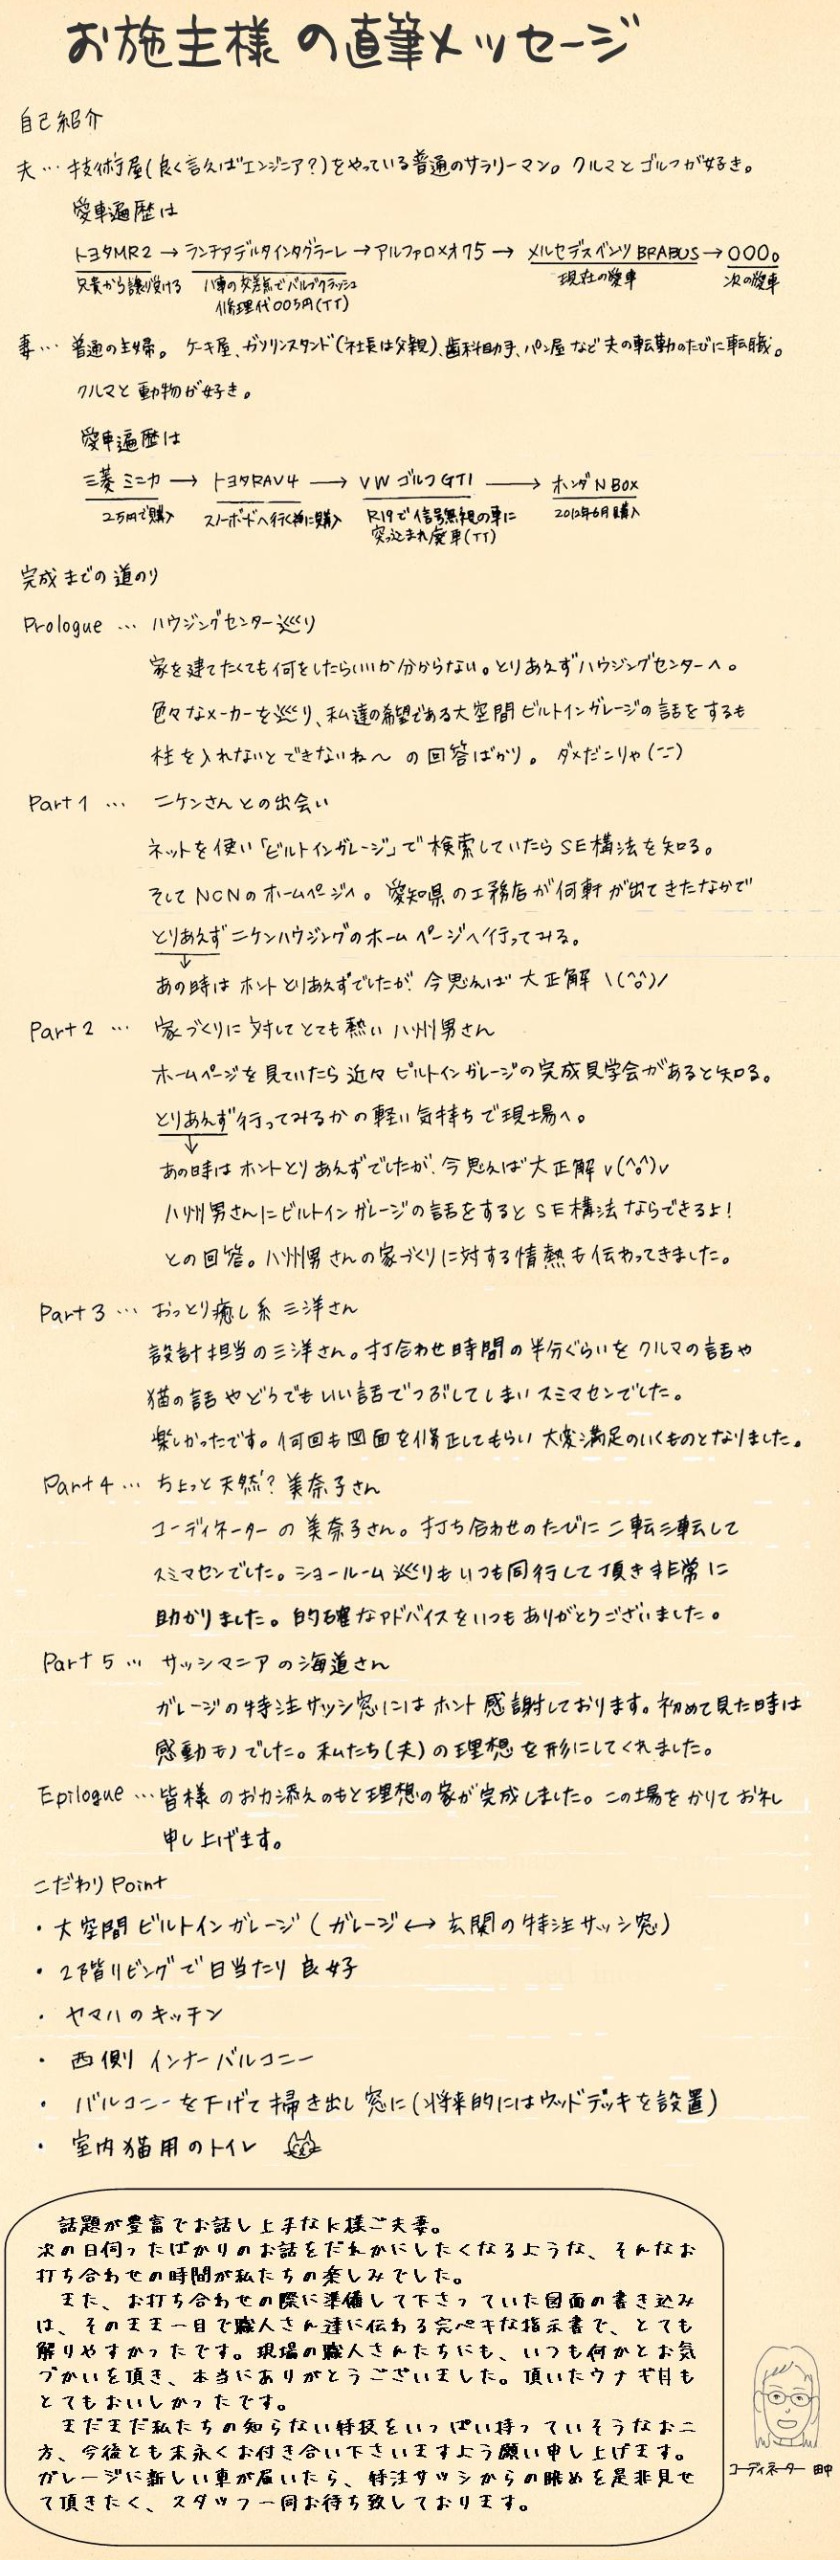 お施主様の直筆メッセージ
自己紹介
夫… 技術屋(良く言えばエンジニア?)をやっている普通のサラリーマン。クルマとゴルフが好き。
愛車遍歴は
トヨタMR2 → ランチアデルタインタグラーレ → アルファロメオ75 → メルセデスベンツBRABUS → ○○○。
兄貴から譲り受ける 八事の交差点でバルブクラッシュ 現在の愛車 次の愛車
修理代○○万円(TT)
妻… 普通の主婦。ケーキ屋、ガソリンスタンド(社長は父親)、歯科助手、パン屋など夫の転勤のたびに転職。
クルマと動物が好き。
愛車遍歴は
三菱ミニカ → トヨタRAV4 → VWゴルフGTI → ホンダNBOX
2万円で購入 スノーボードへ行く為に購入 R19で信号無視の車に 2012年6月購入
突っ込まれ廃車(TT)
完成までの道のり
Prologue … ハウジングセンター巡り
家を建てたくても何をしたらいいか分からない。とりあえずハウジングセンターへ。
色々なメーカーを巡り、私達の希望である大空間ビルトインガレージの話をするも
柱を入れないとできないね〜の回答ばかり。ダメだこりゃ(ーー)
Part1 … ニケンさんとの出会い
ネットを使い「ビルトインガレージ」で検索していたらSE構法を知る。
そしてNCNのホームページへ。愛知県の工務店が何軒が出てきたなかで
とりあえずニケンハウジングのホームページへ行ってみる。
↓
あの時はホントとりあえずでしたが、今思えば大正解 \(^o^)/
Part2 … 家づくりに対してとても熱い八州男さん
ホームページを見ていたら近々ビルトインガレージの完成見学会があると知る。
とりあえず行ってみるかの軽い気持ちで現場へ。
↓
あの時はホントとりあえずでしたが、今思えば大正解 v(^o^)v
八州男さんにビルトインガレージの話をするとSE構法ならできるよ!
との回答。八州男さんの家づくりに対する情熱も伝わってきました。
Part3 … おっとり癒し系三洋さん
設計担当の三洋さん。打合わせ時間の半分ぐらいをクルマの話や
猫の話やどうでもいい話でつぶしてしまいスミマセンでした。
楽しかったです。何回も図面を修正してもらい大変満足のいくものとなりました。
Part4 … ちょっと天然?美奈子さん
コーディネーターの美奈子さん。打ち合わせのたびに二転三転して
スミマセンでした。ショールーム巡りもいつも同行して頂き非常に
助かりました。的確なアドバイスをいつもありがとうございました。
Part5 … サッシマニアの海道さん
ガレージの特注サッシ窓にはホント感謝しております。初めて見た時は
感動モノでした。私たち(夫)の理想を形にしてくれました。
Epilogue … 皆様のお力添えのもと理想の家が完成しました。この場をかりてお礼
申し上げます。
こだわりPoint
・大空間ビルトインガレージ(ガレージ↔玄関の特注サッシ窓)
・2階リビングで日当たり良好
・ヤマハのキッチン
・西側インナーバルコニー
・バルコニーを下げて掃き出し窓に(将来的にはウッドデッキを設置)
・室内猫用のトイレ
話題が豊富でお話し上手なK様ご夫妻。
次の日伺ったばかりのお話をだれかにしたくなるような、そんなお
打ち合わせの時間が私たちの楽しみでした。
また、お打ち合わせの際に準備して下さっていた図面の書き込み
は、そのまま一目で職人さん達に伝わる完ペキな指示書で、とても
解りやすかったです。現場の職人さんたちにも、いつも何かとお気
づかいを頂き、本当にありがとうございました。頂いたウナギ丼も
とてもおいしかったです。
まだまだ私たちの知らない特技をいっぱい持っていそうなお二
方、今後とも末永くお付き合い下さいますよう願い申し上げます。
ガレージに新しい車が届いたら、特注サッシからの眺めを是非見せ
て頂きたく、スタッフ一同お待ち致しております。
コーディネーター 田中